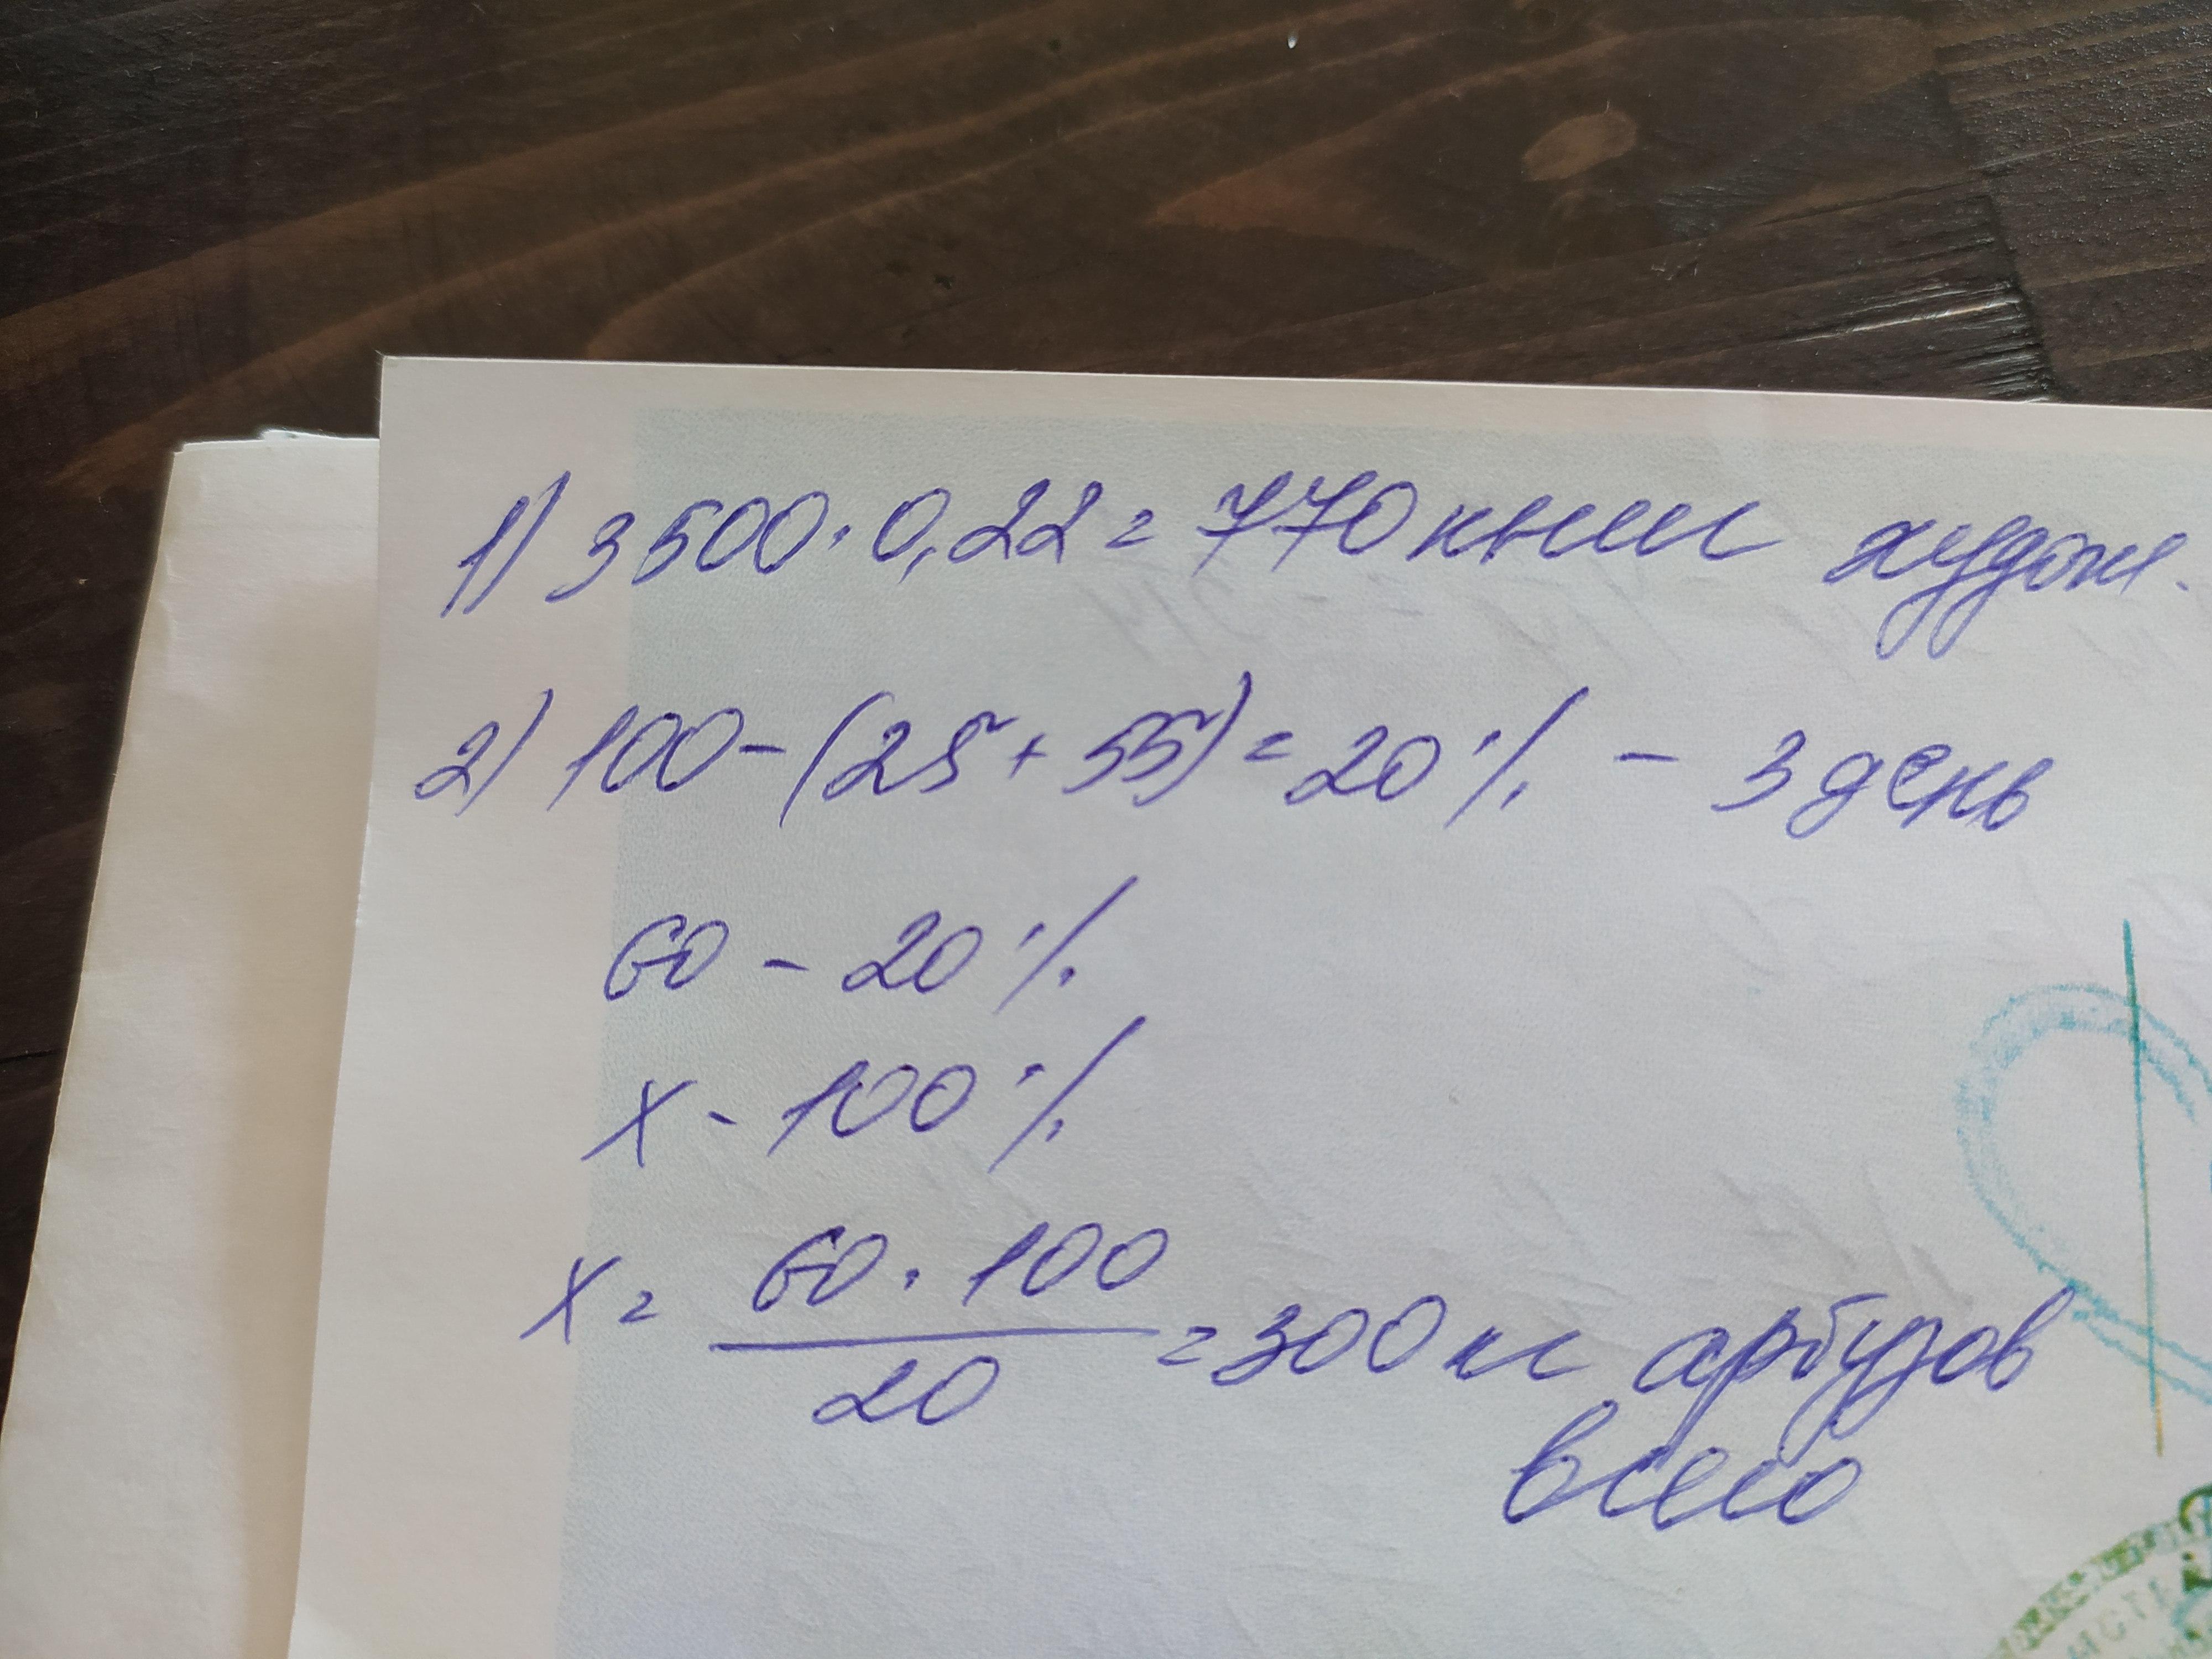 1) 3500 · 0,22 = 770 книг худож.
2) 100 - (25 + 55) = 20% - 3 день
60 - 20%
x - 100%
x = 60 · 100 / 20 = 300 кг арбузов
всего